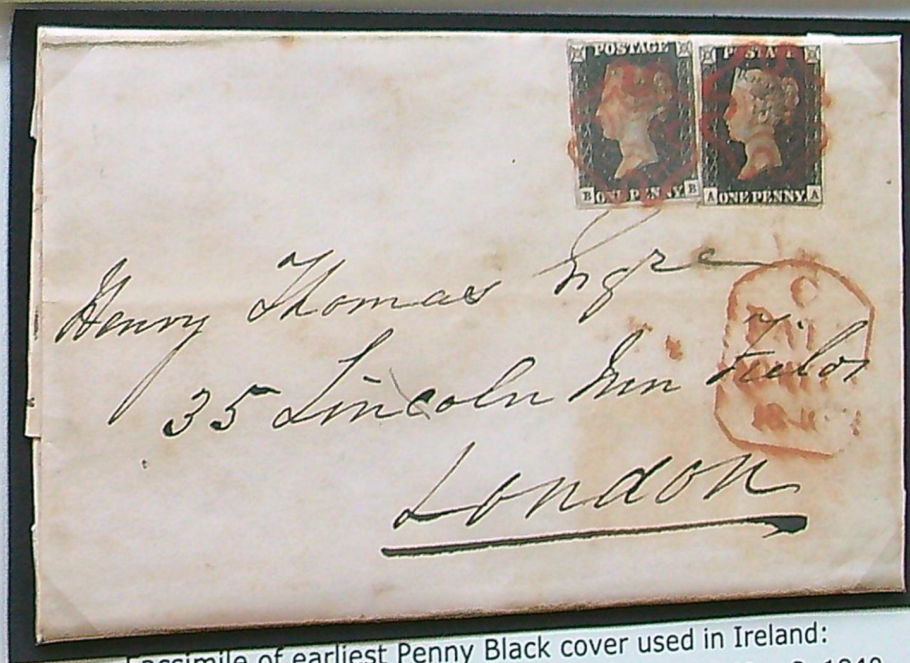 POSTAGE
B ONE PENNY B
A ONE PENNY A
Henry Thomas Esqre
35 Lincoln Inn Fields
London
Facsimile of earliest Penny Black cover used in Ireland:
1840